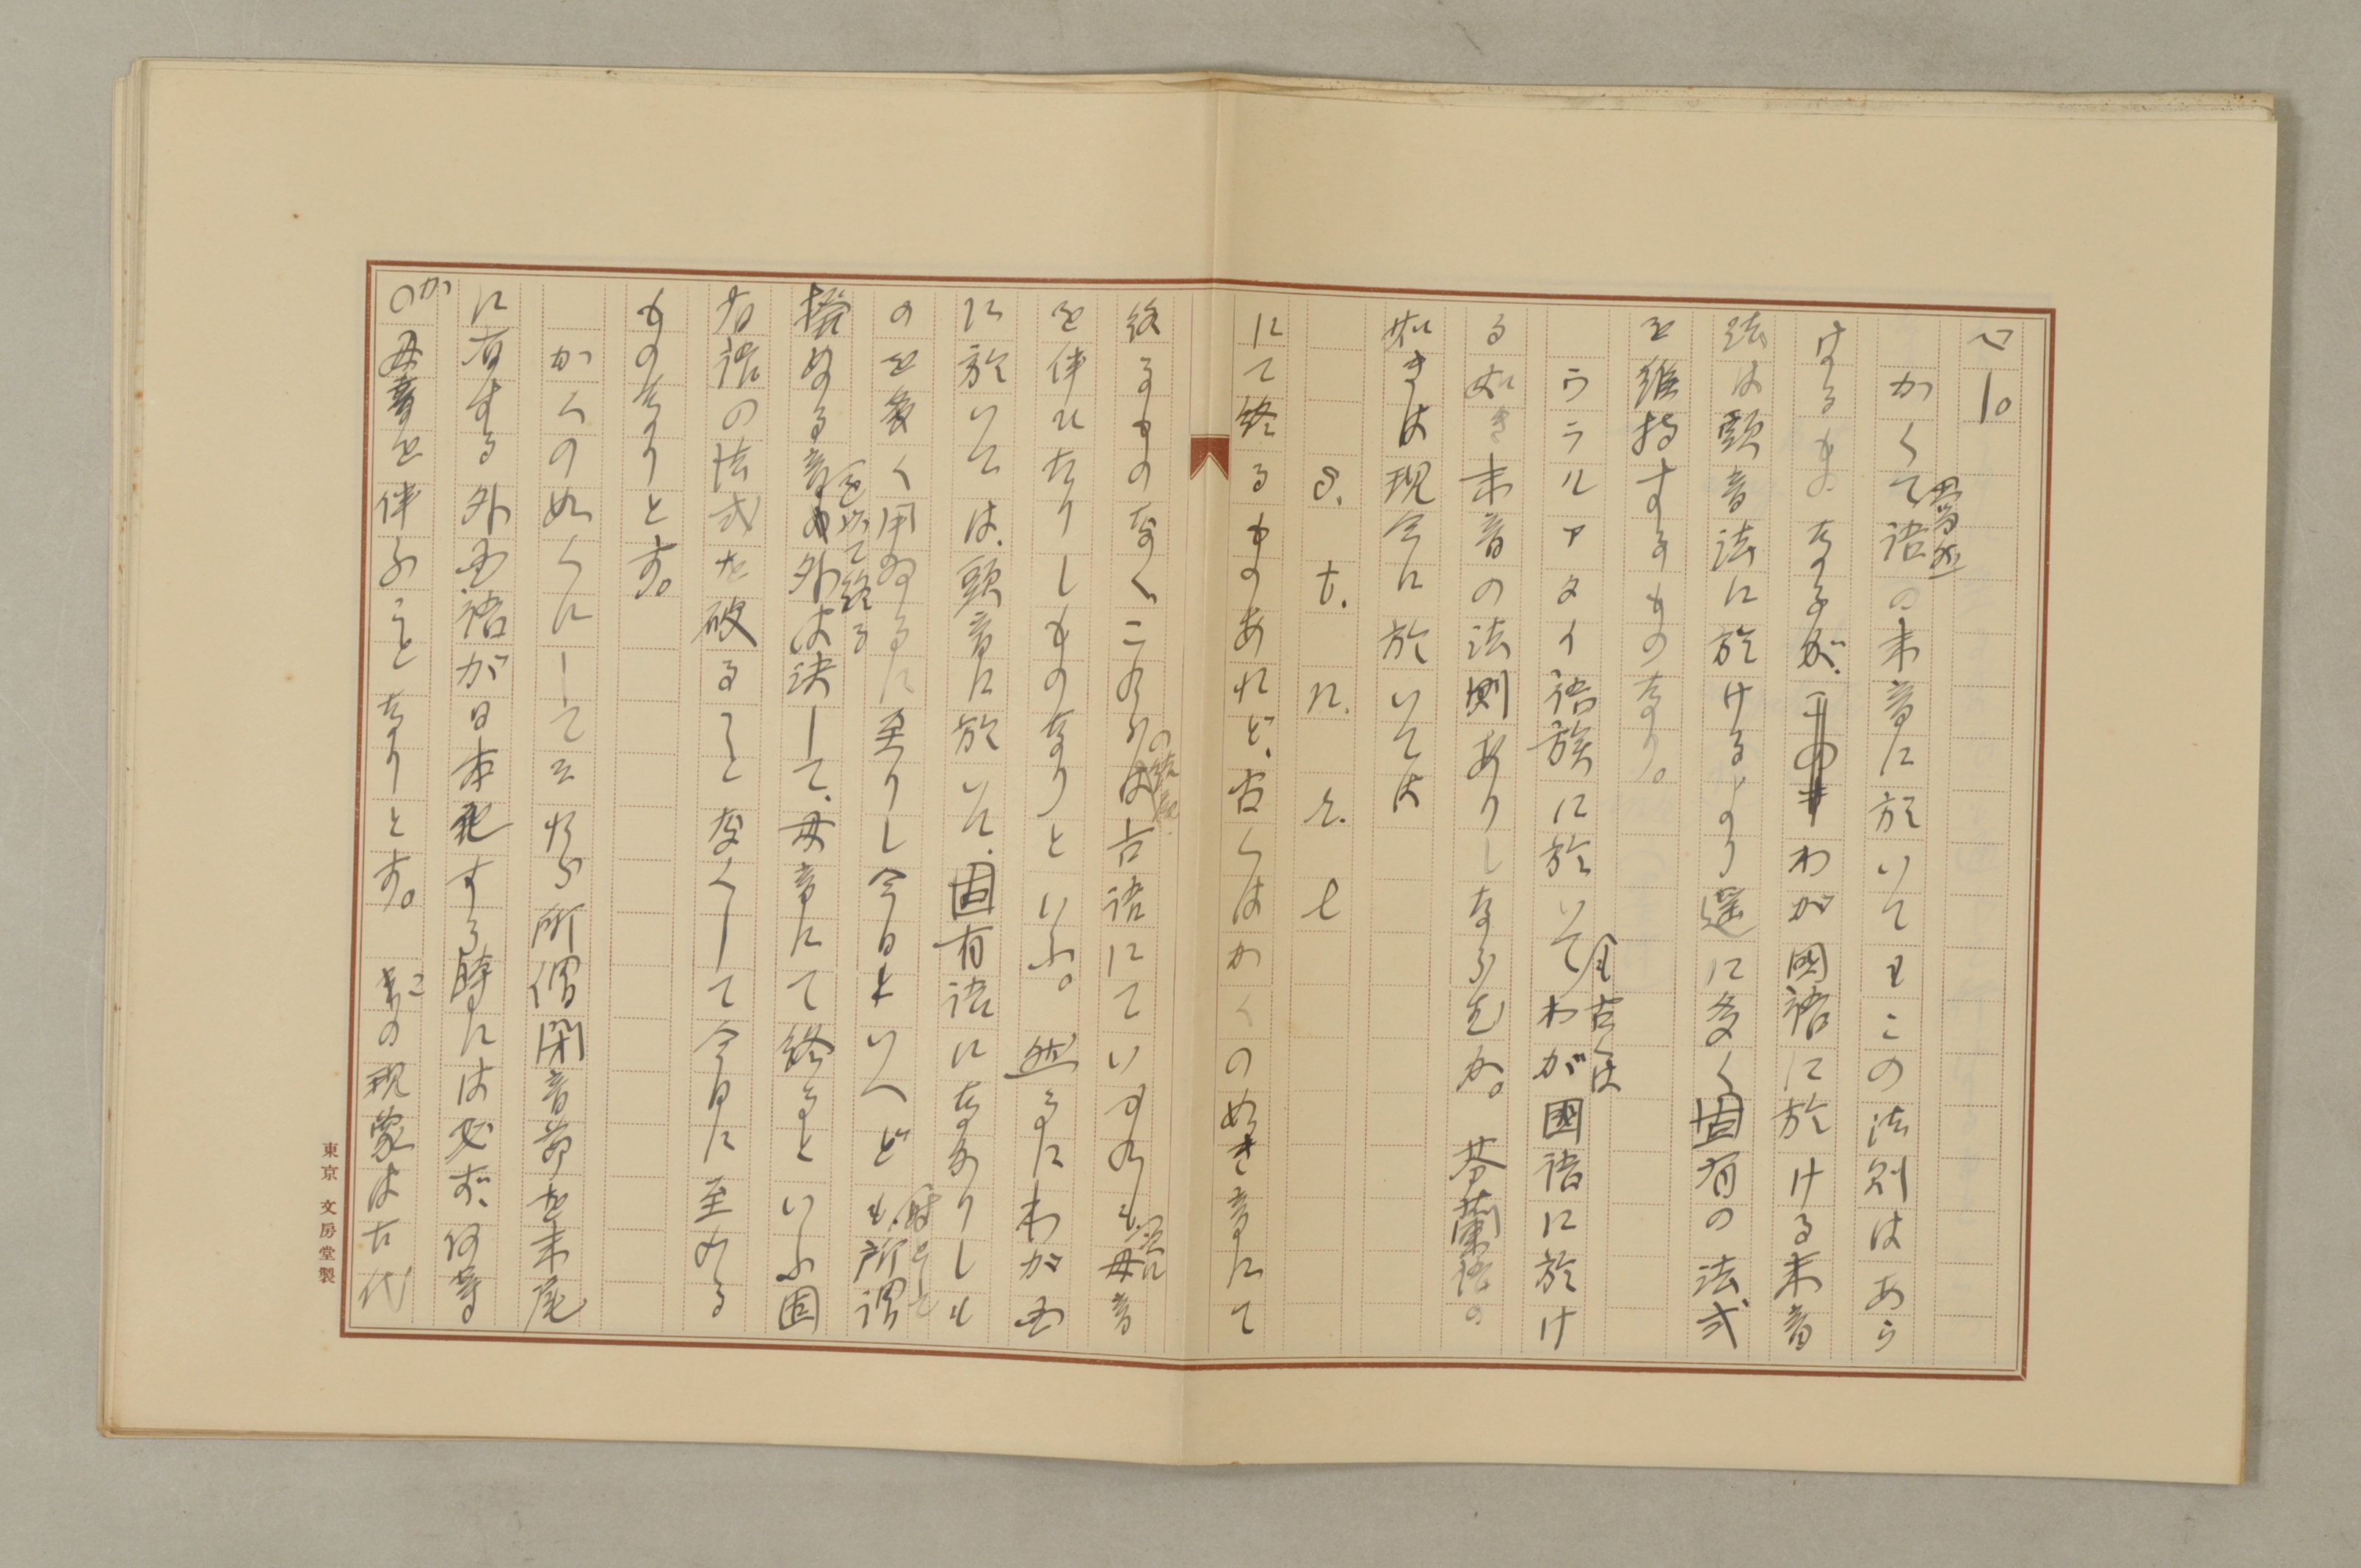 べし。
かくて語の末音に於いてもこの法則はあら
はるゝものなるが、わが國語に於ける末音
法は頭音法に於けるより遥に多く固有の法式
を維持するものなり。
ウラルアタイ語族に於いて、わが國語に於け
る如き末音の法則ありしならむか。芬蘭語の
如きは現今に於いては
s. t. n. r. l
にて終るものあれど、古くはかくの如き音にて
終るものなく、これらは古語にていづれも母音
を伴ひたりしものなりといふ。然るにわが国
に於いては、頭音に於いて、固有語になかりしも
のを多く用ゐるに至りし今日といへども、所謂
撥ぬる音の外は決して、母音にて終るといふ固
有語の法式を破ることなくして今日に至れる
ものなりとす。
かくの如くにして云はゞ所謂閉音節を末尾
に有する外国語が日本化する時には必ず、何等
かの母音を伴ふことなりとす。この現象は古代
東京 文房堂製